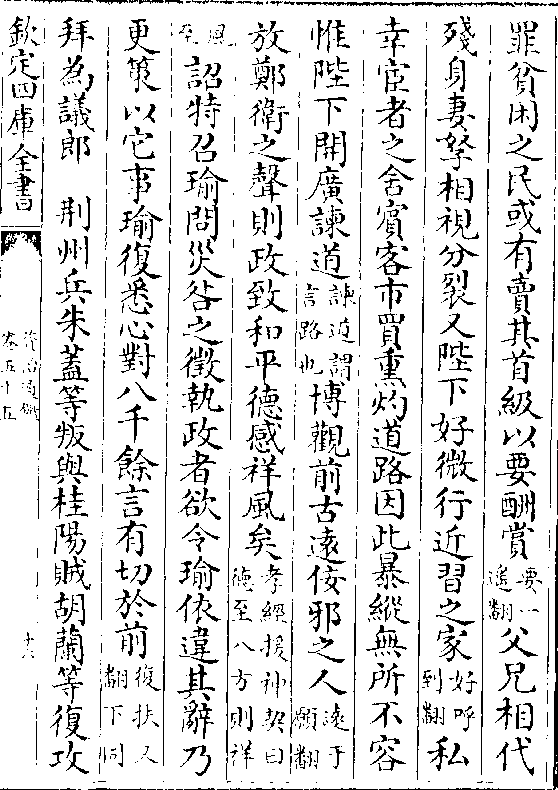 罪貧困之民或有賣其首級以要酬賞要一遙翻父兄相代
殘身妻孥相視分裂又陛下好微行近習之家好呼到翻私
幸宦者之舍賓客市買熏灼道路因此暴縱無所不容
惟陛下開廣諫道諫道謂言路也博觀前古遠佞邪之人遠于願翻
放鄭衛之聲則政致和平德感祥風矣孝經援神契曰德至八方則祥
風至詔特召瑜問災咎之徵執政者欲令瑜依違其辭乃
更策以它事瑜復悉心對八千餘言有切於前復扶又翻下同
拜為議郎 荆州兵朱蓋等叛與桂陽賊胡蘭等復攻
欽定四庫全書
資治通鑑
卷五十五
十六